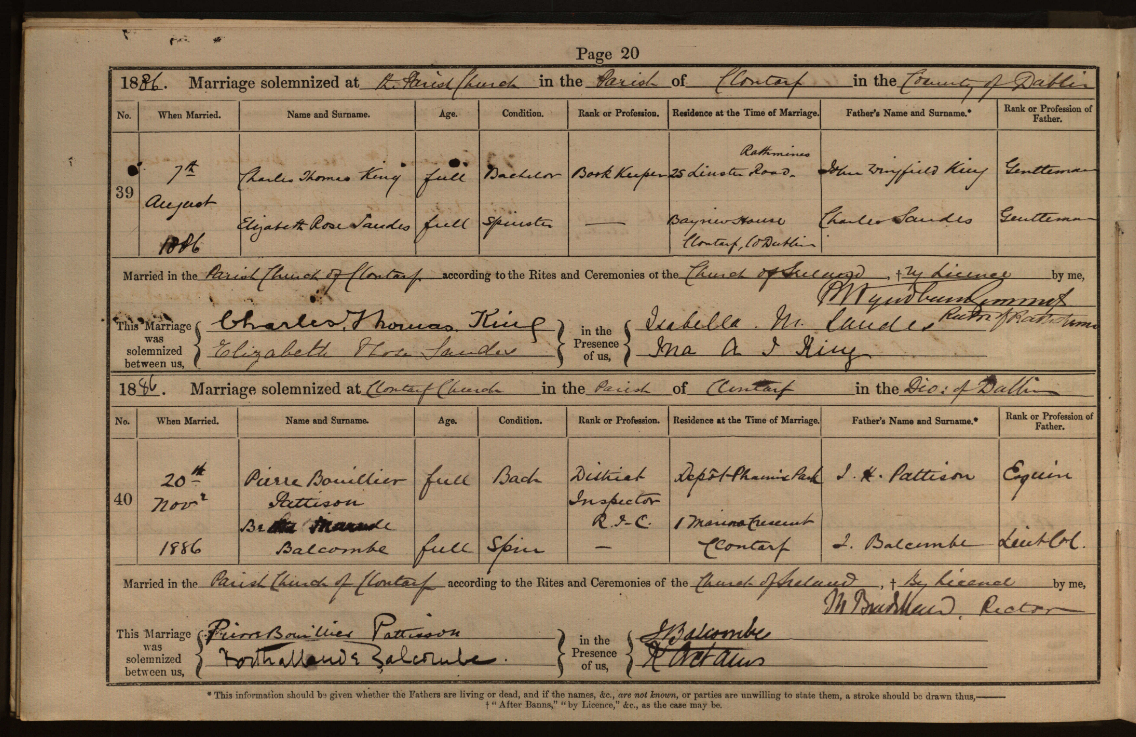 Page 20
1886. Marriage solemnized at Parish Church in the Parish of Clontarf in the County of Dublin
No. When Married. Name and Surname. Age. Condition. Rank or Profession. Residence at the Time of Marriage. Father's Name and Surname.* Rank or Profession of Father.
Rathmines
39 7th Charles Thomas King full Bachelor Book Keeper 25 Leinster Road John Wingfield King Gentleman
August
Elizabeth Rose Sandes full Spinster — Bayview House Charles Sandes Gentleman
1886 Clontarf, Co Dublin
Married in the Parish Church of Clontarf according to the Rites and Ceremonies of the Church of Ireland, † by Licence by me,
Rector of
This Marriage was solemnized between us,
Charles Thomas King
Elizabeth Rose Sandes
in the Presence of us,
Isabella M. Sandes
Ina A J King
1886. Marriage solemnized at Clontarf Church in the Parish of Clontarf in the Dio: of Dublin
No. When Married. Name and Surname. Age. Condition. Rank or Profession. Residence at the Time of Marriage. Father's Name and Surname.* Rank or Profession of Father.
40 20th Pierre Bouillier full Bach District Depôt Phœnix Park J. H. Pattison Esquire
Novr Pattison Inspector
R.I.C. 1 Marino Crescent
1886 Balcombe full Spin — Clontarf J. Balcombe Lieut Col.
Married in the Parish Church of Clontarf according to the Rites and Ceremonies of the Church of Ireland, † By Licence by me,
Rector
This Marriage was solemnized between us,
Pierre Bouillier Pattisson
Balcombe.
in the Presence of us,
J Balcombe
* This information should be given whether the Fathers are living or dead, and if the names, &c., are not known, or parties are unwilling to state them, a stroke should be drawn thus,———
† "After Banns," "by Licence," &c., as the case may be.